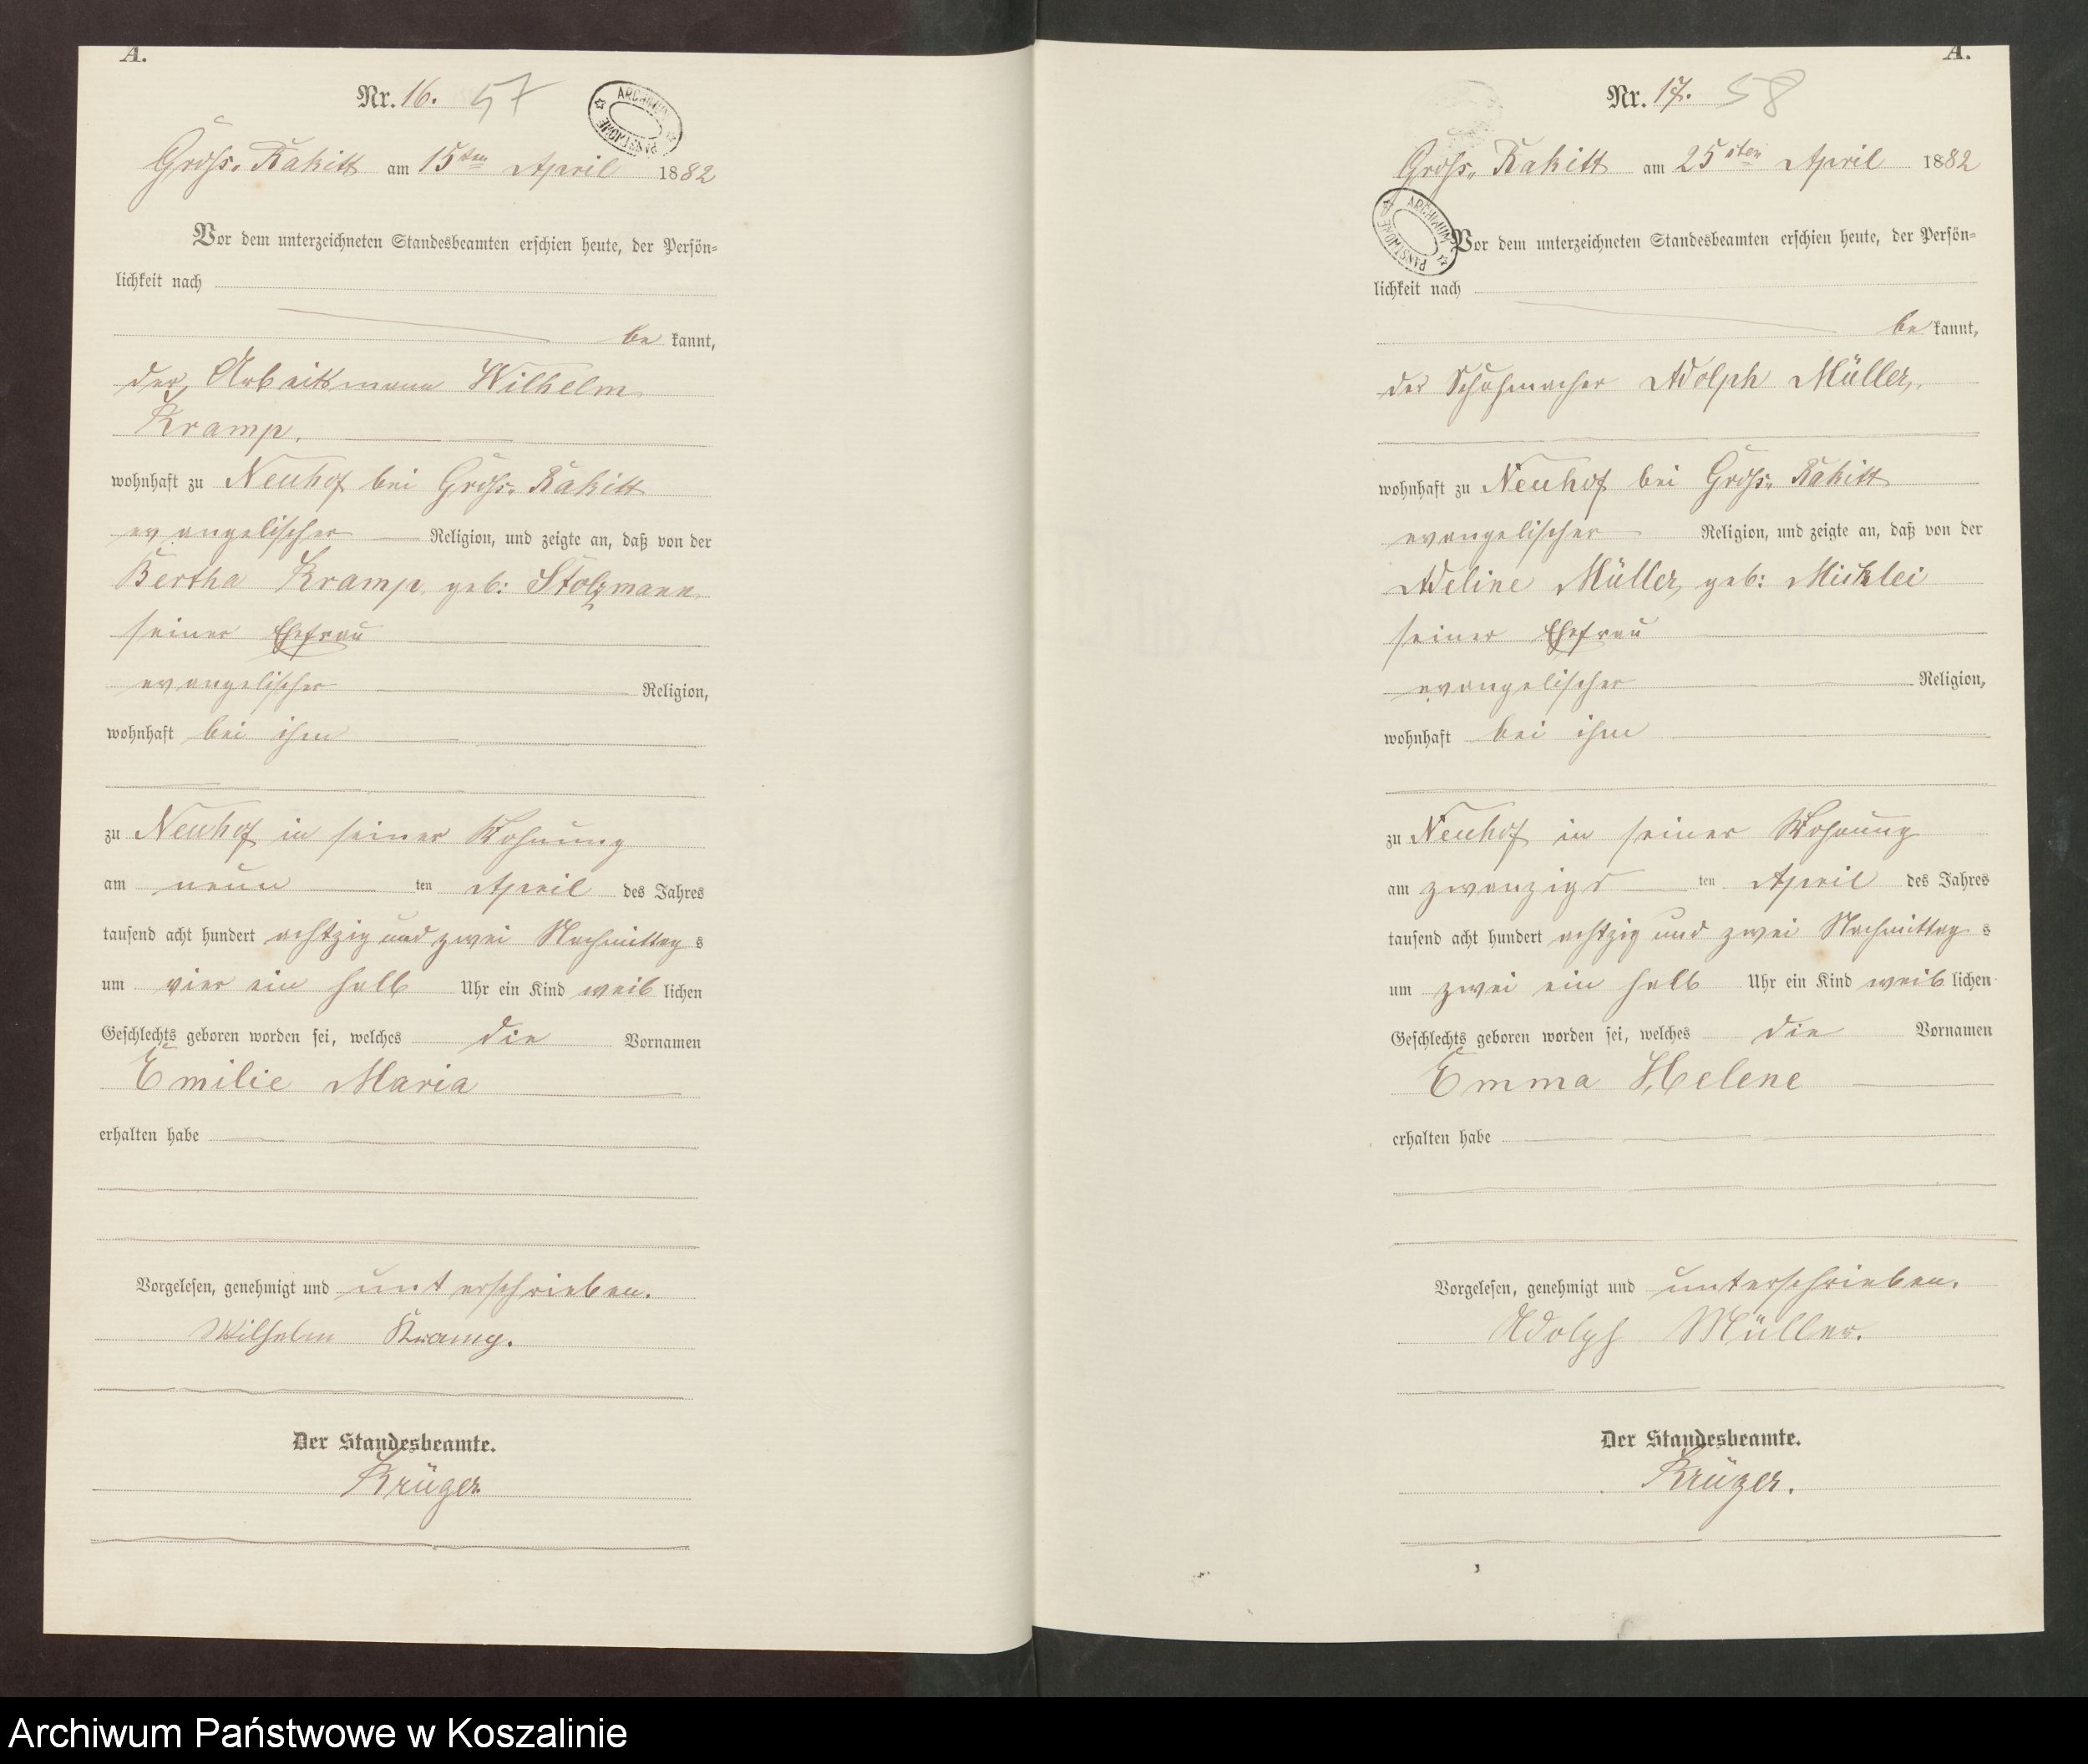 A.
Nr. 16. 57
ARCHIWUM PAŃSTWOWE
Gross. Rakitt am 15ten April 1882
Vor dem unterzeichneten Standesbeamten erschien heute, der Persön-
lichkeit nach
be kannt,
der Arbeitsmann Wilhelm
Kramp.
wohnhaft zu Neuhof bei Gross. Rakitt
evangelischer Religion, und zeigte an, daß von der
Bertha Kramp geb: Stolzmann
seiner Ehefrau
evangelischer Religion,
wohnhaft bei ihm
zu Neuhof in seiner Wohnung
am neun ten April des Jahres
tausend acht hundert achtzig und zwei Nachmittag s
um vier ein halb Uhr ein Kind weib lichen
Geschlechts geboren worden sei, welches die Vornamen
Emilie Maria
erhalten habe
Vorgelesen, genehmigt und unterschrieben.
Wilhelm Kramp.
Der Standesbeamte.
Krüger
A.
Nr. 17. 58
Gross. Rakitt am 25sten April 1882
ARCHIWUM PAŃSTWOWE
Vor dem unterzeichneten Standesbeamten erschien heute, der Persön-
lichkeit nach
be kannt,
der Schuhmacher Adolph Müller,
wohnhaft zu Neuhof bei Gross. Rakitt
evangelischer Religion, und zeigte an, daß von der
Adeline Müller, geb: Micklei
seiner Ehefrau
evangelischer Religion,
wohnhaft bei ihm
zu Neuhof in seiner Wohnung
am zwanzigs ten April des Jahres
tausend acht hundert achtzig und zwei Nachmittag s
um zwei ein halb Uhr ein Kind weib lichen
Geschlechts geboren worden sei, welches die Vornamen
Emma Helene
erhalten habe
Vorgelesen, genehmigt und unterschrieben.
Adolph Müller.
Der Standesbeamte.
Krüger.
Archiwum Państwowe w Koszalinie